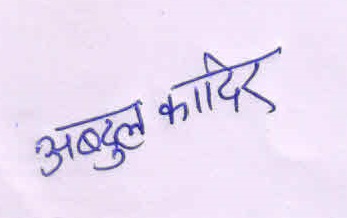 अबदुल कादिर